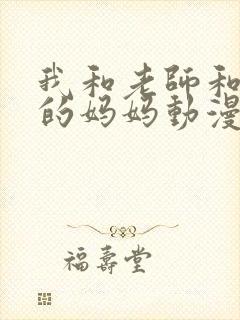 我和老師和
的妈妈動漫
福壽堂